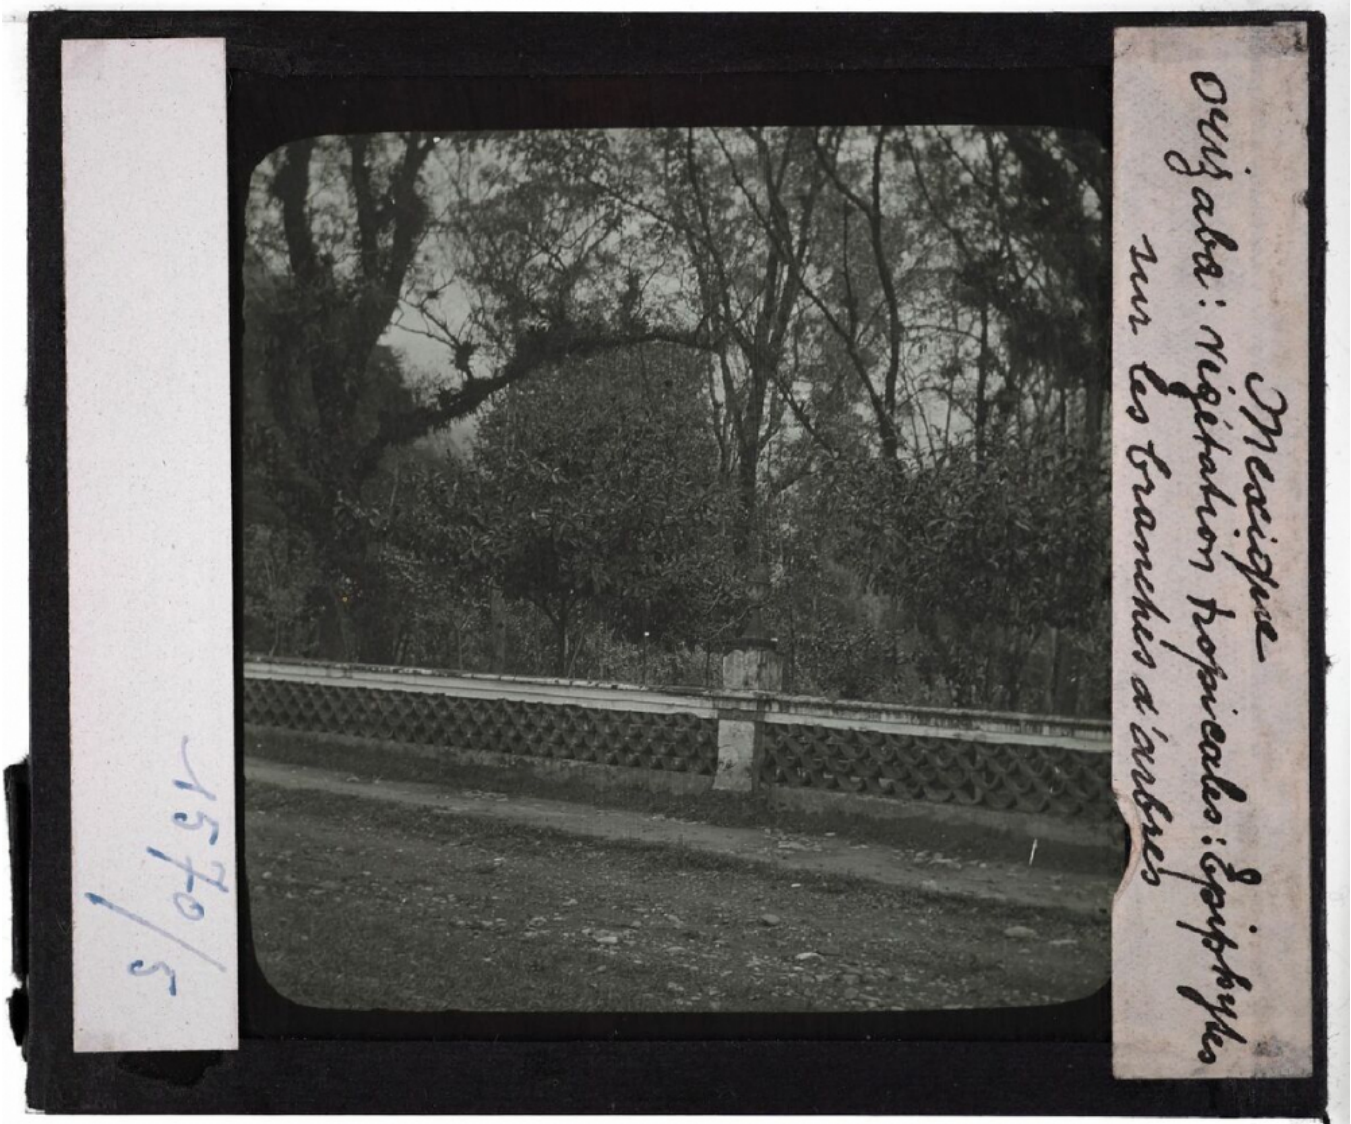 Mexique
Orizaba: végétation tropicales: Epiphytes
sur les branches d'arbres
1570/5